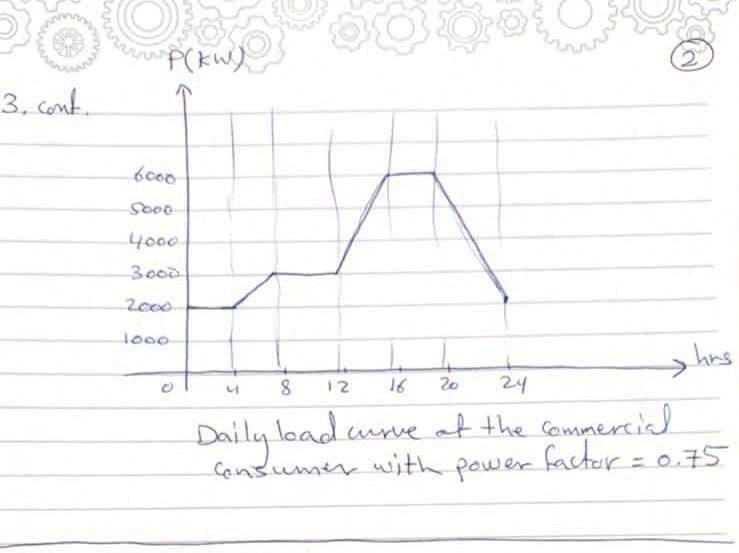 P(kW)
2
3. cont.
6000
5000
4000
3000
2000
1000
hrs
0 4 8 12 16 20 24
Daily load curve of the commercial
consumer with power factor = 0.75